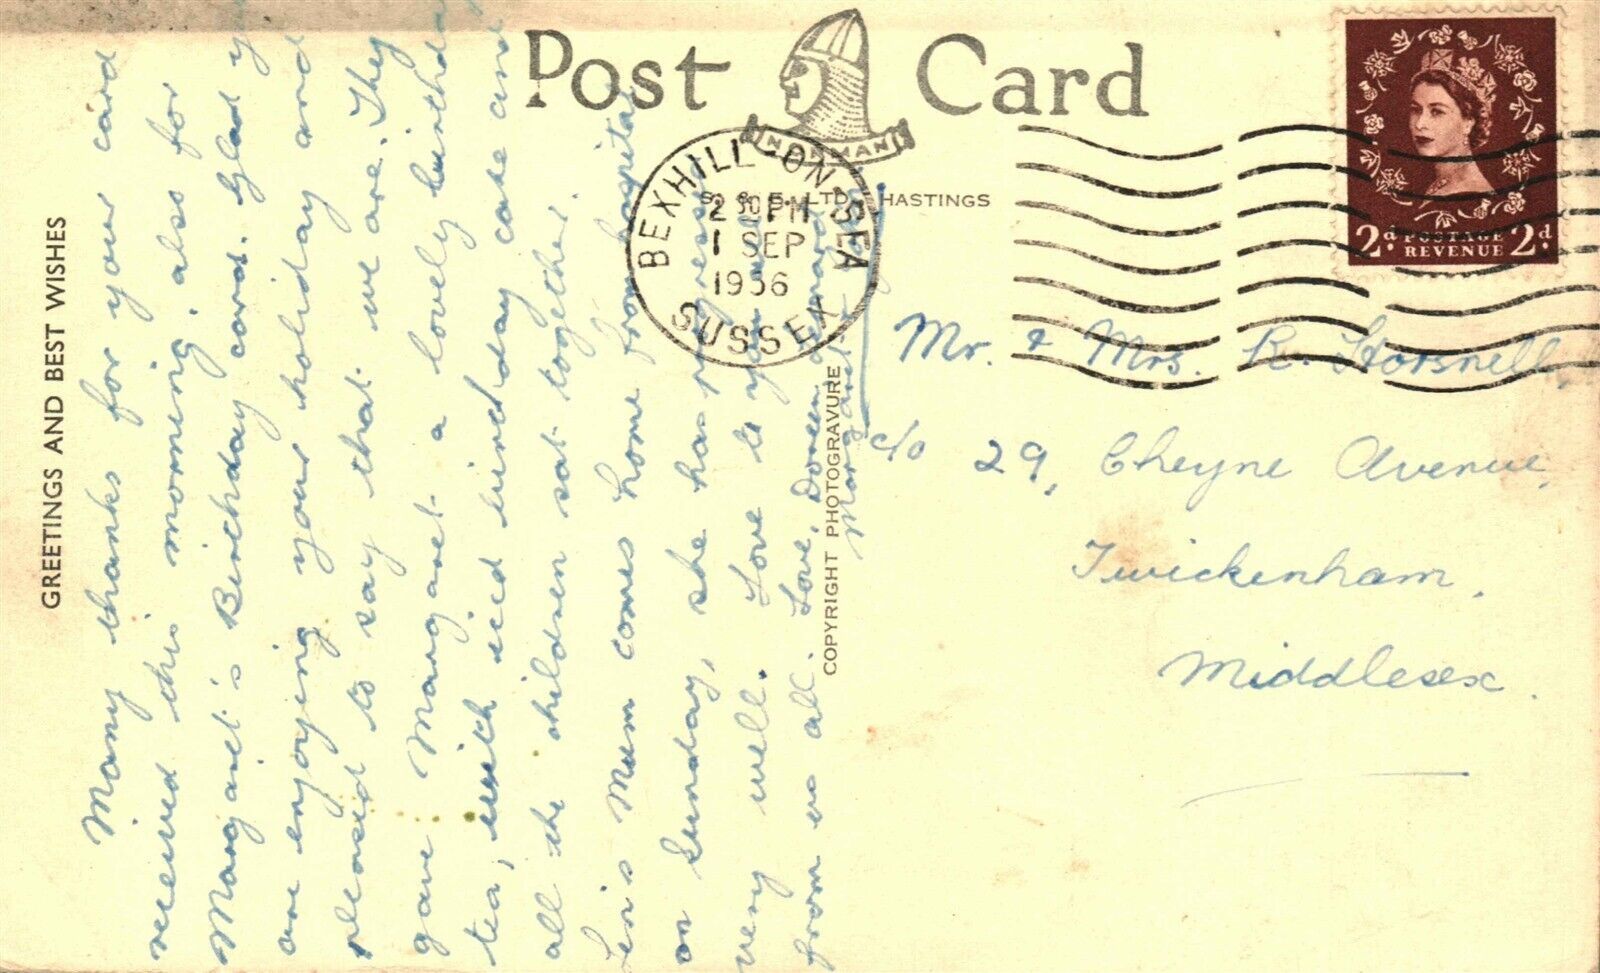 Post Card
NORMAN
S. & E. LTD. HASTINGS
BEXHILL-ON-SEA
2 30 PM
1 SEP
1956
SUSSEX
2d. POSTAGE 2d.
REVENUE
GREETINGS AND BEST WISHES
COPYRIGHT PHOTOGRAVURE
Many thanks for your card
received this morning, also for
Margaret's Birthday card. Glad
are enjoying your holiday and
pleased to say that we are. They
gave Margaret a lovely birthday
tea, with iced birthday cake and
all the children sat together.
Len's Mum comes home from hospital
on Sunday, she has progressed
very well. Love to you all
from us all. Love, Doreen,
Margaret
Mr. & Mrs. R. Horsnell,
c/o 29, Cheyne Avenue,
Twickenham,
Middlesex.